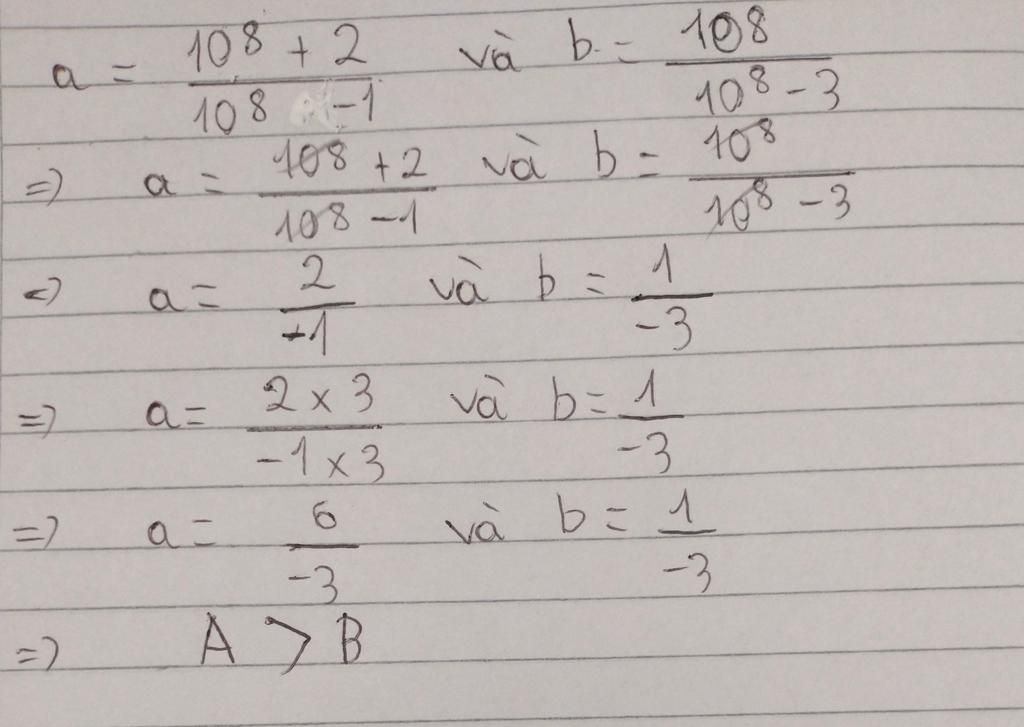 a = (10⁸ + 2)/(10⁸ - 1) và b = 10⁸/(10⁸ - 3)
=> a = (10⁸ + 2)/(10⁸ - 1) và b = 10⁸/(10⁸ - 3)
=> a = 2/-1 và b = 1/-3
=> a = (2 × 3)/(-1 × 3) và b = 1/-3
=> a = 6/-3 và b = 1/-3
=> A > B